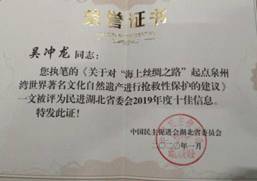 荣誉证书
吴冲龙同志：
您执笔的《关于对“海上丝绸之路”起点泉州
湾世界著名文化自然遗产进行抢救性保护的建议》
一文被评为民进湖北省委会2019年度十佳信息。
特发此证！
中国民主促进会湖北省委员会
二〇二〇年一月